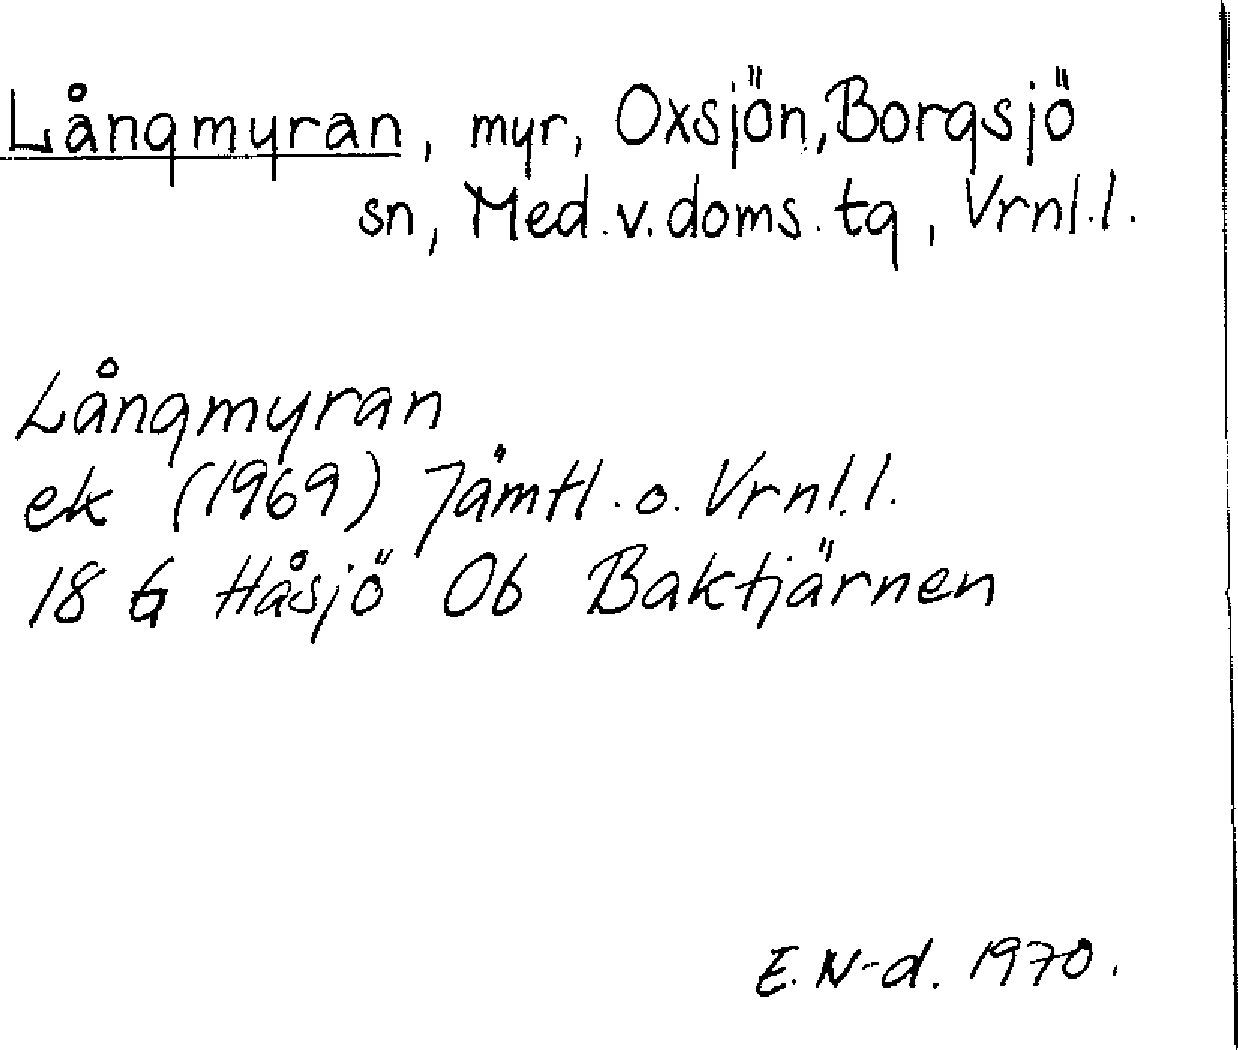 Långmyran, myr, Oxsjön, Borgsjö
sn, Med.v.doms.tg, Vrnl.l.
Långmyran
ek (1969) Jämtl.o.Vrnl.l.
18 G Håsjö Ob Baktjärnen
E.N-d. 1970.